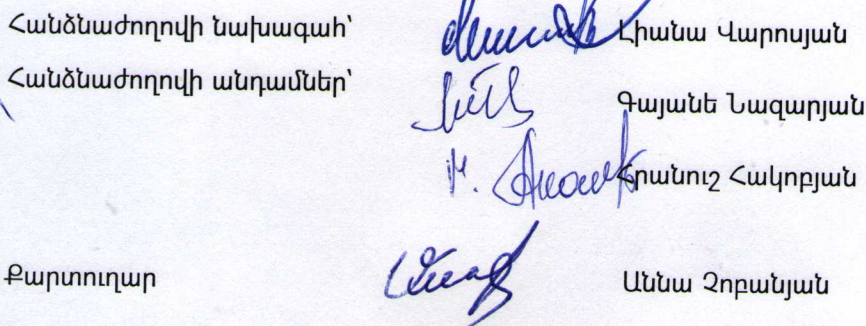 Հանձնաժողովի նախագահ՝ Լիանա Վարոսյան
Հանձնաժողովի անդամներ՝
Գայանե Նազարյան
Հրանուշ Հակոբյան
Քարտուղար Աննա Չոբանյան